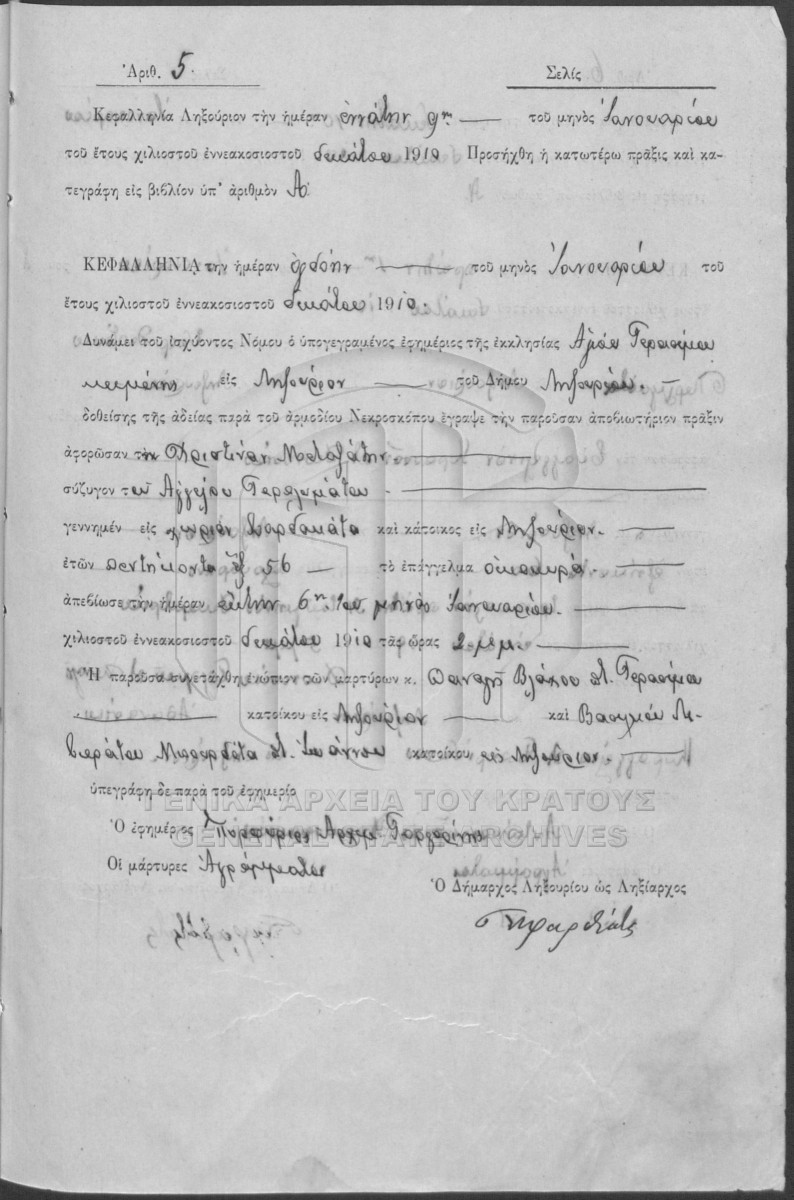 Ἀριθ. 5
Σελίς
Κεφαλληνία Ληξούριον τὴν ἡμέραν ἐννάτην 9ην τοῦ μηνὸς Ἰανουαρίου
τοῦ ἔτους χιλιοστοῦ ἐννεακοσιοστοῦ δεκάτου 1910 Προσήχθη ἡ κατωτέρω πρᾶξις καὶ κα-
τεγράφη εἰς βιβλίον ὑπ' ἀριθμὸν Α
ΚΕΦΑΛΛΗΝΙΑ την ἡμέραν ὀγδόην τοῦ μηνὸς Ἰανουαρίου τοῦ
ἔτους χιλιοστοῦ ἐννεακοσιοστοῦ δεκάτου 1910.
Δυνάμει τοῦ ἰσχύοντος Νόμου ὁ ὑπογεγραμένος ἐφημέριος τῆς ἐκκλησίας Ἁγίου Γερασίμου
κειμένης εἰς Ληξούριον τοῦ Δήμου Ληξουρίου.
δοθείσης τῆς ἀδείας παρὰ τοῦ ἁρμοδίου Νεκροσκόπου ἔγραψε τὴν παροῦσαν ἀποβιωτήριον πρᾶξιν
ἀφορῶσαν τὴν Χριστίναν Μεταξάτην.
σύζυγον τοῦ Ἀγγέλου
γεννημέν εἰς χωρίον καὶ κάτοικος εἰς Ληξούριον.
ἐτῶν πεντήκοντα ἕξ 56 τὸ ἐπάγγελμα οἰκοκυρά.
ἀπεβίωσε τὴν ἡμέραν ἕκτην 6ην τοῦ μηνὸς Ἰανουαρίου.
χιλιοστοῦ ἐννεακοσιοστοῦ δεκάτου 1910 τὰς ὥρας 2 μ.μ.
Ἡ παροῦσα συνετάχθη ἐνώπιον τῶν μαρτύρων κ. Παναγῆ Βλάχου Γερασίμου
κατοίκου εἰς Ληξούριον καὶ Βασιλείου
Ἰωάννου κατοίκου εἰς Ληξούριον.
ὑπεγράφη δε παρὰ τοῦ ἐφημερίο
ΓΕΝΙΚΑ ΑΡΧΕΙΑ ΤΟΥ ΚΡΑΤΟΥΣ
GENERAL STATE ARCHIVES
Ὁ ἐφημέριος
Οἱ μάρτυρες Ἀγράμματοι
Ὁ Δήμαρχος Ληξουρίου ὡς Ληξίαρχος